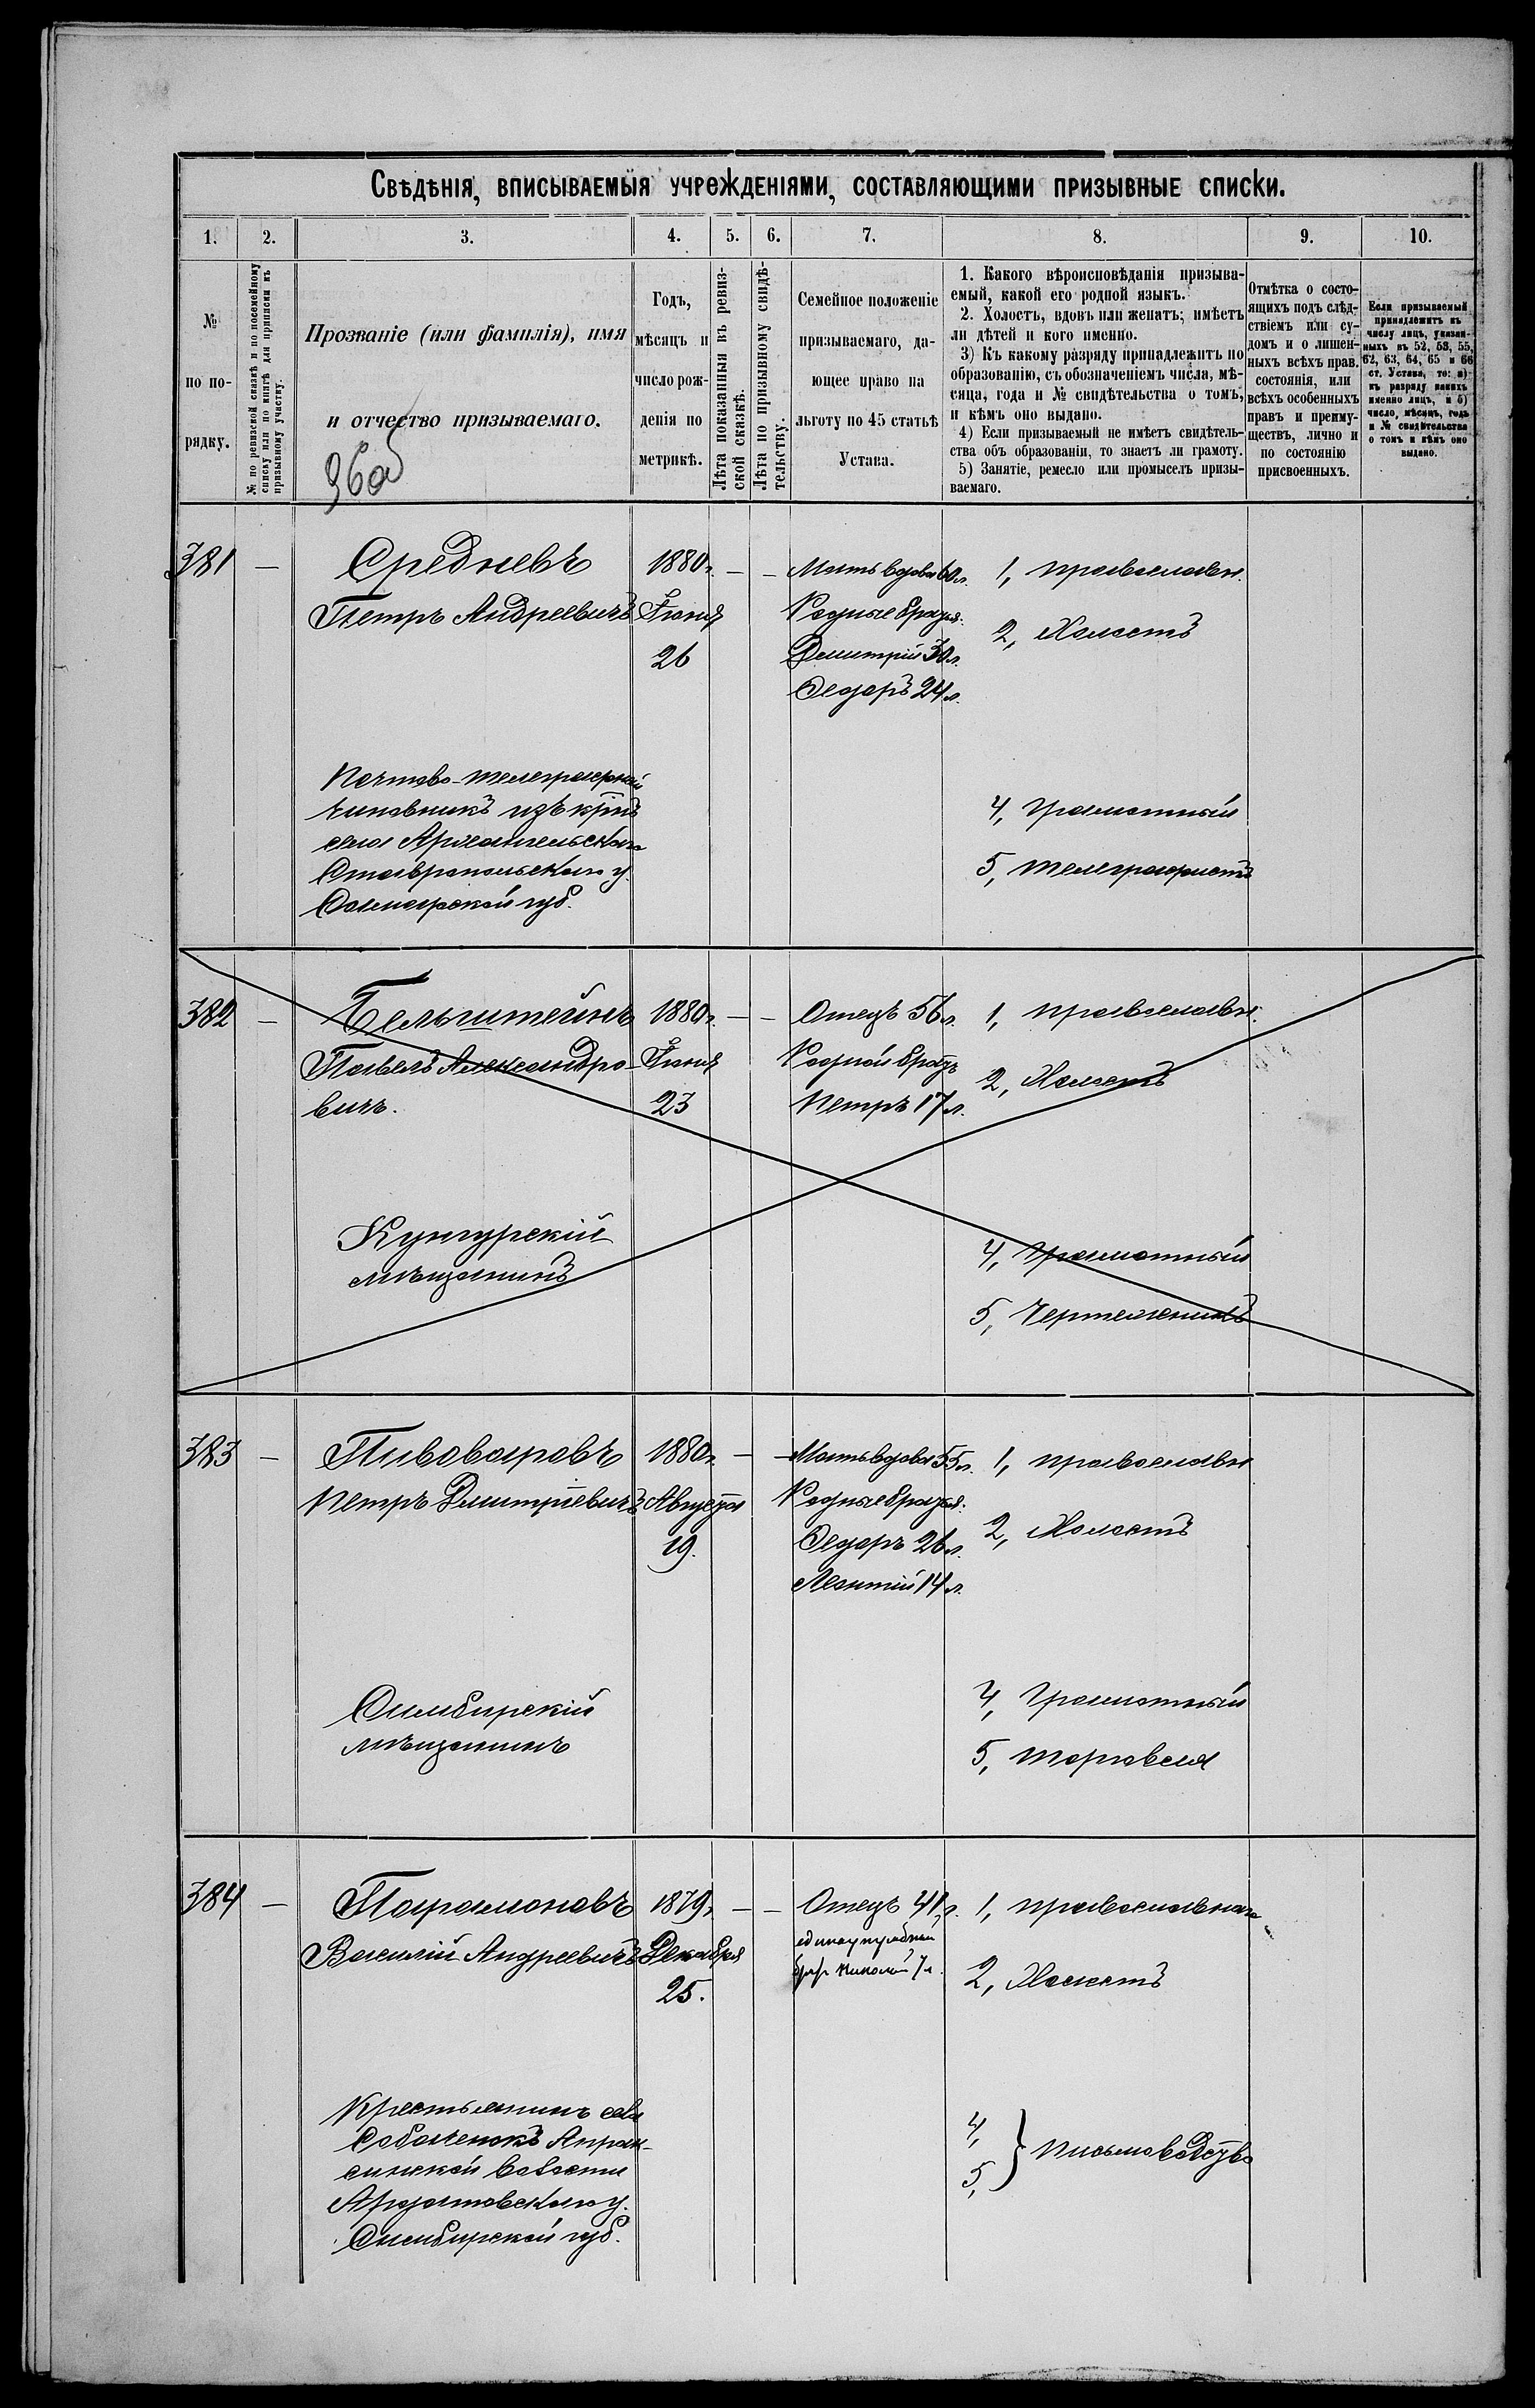 Свѣдѣнія, вписываемыя учрежденіями, составляющими призывные списки.
1. 2. 3. 4. 5. 6. 7. 8. 9. 10.
№
по по-
рядку.
№ по ревизской сказкѣ и по посемейному
списку или по книгѣ для приписки къ
призывному участку.
Прозваніе (или фамилія), имя
и отчество призываемаго.
Годъ,
мѣсяцъ и
число рож-
денія по
метрикѣ.
Лѣта показанныя въ ревиз-
ской сказкѣ.
Лѣта по призывному свидѣ-
тельству.
Семейное положеніе
призываемаго, да-
ющее право на
льготу по 45 статьѣ
Устава.
1. Какого вѣроисповѣданія призыва-
емый, какой его родной языкъ.
2. Холостъ, вдовъ или женатъ; имѣетъ
ли дѣтей и кого именно.
3) Къ какому разряду принадлежитъ по
образованію, съ обозначеніемъ числа, мѣ-
сяца, года и № свидѣтельства о томъ,
и кѣмъ оно выдано.
4) Если призываемый не имѣетъ свидѣтель-
ства объ образованіи, то знаетъ ли грамоту.
5) Занятіе, ремесло или промыселъ призы-
ваемаго.
Отмѣтка о состо-
ящихъ подъ слѣд-
ствіемъ или су-
домъ и о лишен-
ныхъ всѣхъ прав.
состоянія, или
всѣхъ особенныхъ
правъ и преиму-
ществъ, лично и
по состоянію
присвоенныхъ.
Если призываемый
принадлежитъ къ
числу лицъ, указан-
ныхъ въ 52, 53, 55,
62, 63, 64, 65 и 66
ст. Устава, то: а)
къ разряду какихъ
именно лицъ, и б)
число, мѣсяцъ, годъ
и № свидѣтельства
о томъ и кѣмъ оно
выдано.
381 — Средневъ 1880г. — — Мать вдова 60 л. 1, православн.
Петръ Андреевичъ Іюня Родные братья:
26 Дмитрій 30 л. 2, Холостъ
Федоръ 24 л.
Почтово-телеграфный
чиновникъ изъ кр.
села Архангельскаго
Ставропольскаго у.
Самарской губ.
4, Грамотный
5, телеграфистъ
382 — Бельштейнъ 1880г. — — Отецъ 56 л. 1, православн.
Павелъ Александро- Іюня Родной братъ
вичъ. 23 Петръ 17 л. 2, Холостъ
Кунгурскій
мѣщанинъ
4, Грамотный
5, Чертежникъ
383 — Пивоваровъ 1880г. — — Мать вдова 55 л. 1, православн
Петръ Дмитріевичъ Августа Родные братья:
19. Федоръ 26 л. 2, Холостъ
Леонтій 14 л.
Симбирскій
мѣщанинъ
4, Грамотный
5, торговля
384 — Парамоновъ 1879г. — — Отецъ 41 л. 1, православнаго
Василій Андреевичъ Декабря единоутробный
25. бр. Николай 7 л. 2, Холостъ
Крестьянинъ села
Собаченокъ Апрак-
синской волости
Ардатовскаго у.
Симбирской губ.
4,
5, } письмоводство